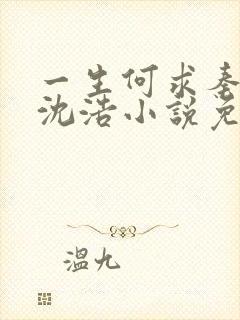 一生何求秦
沈浩小說免
溫九